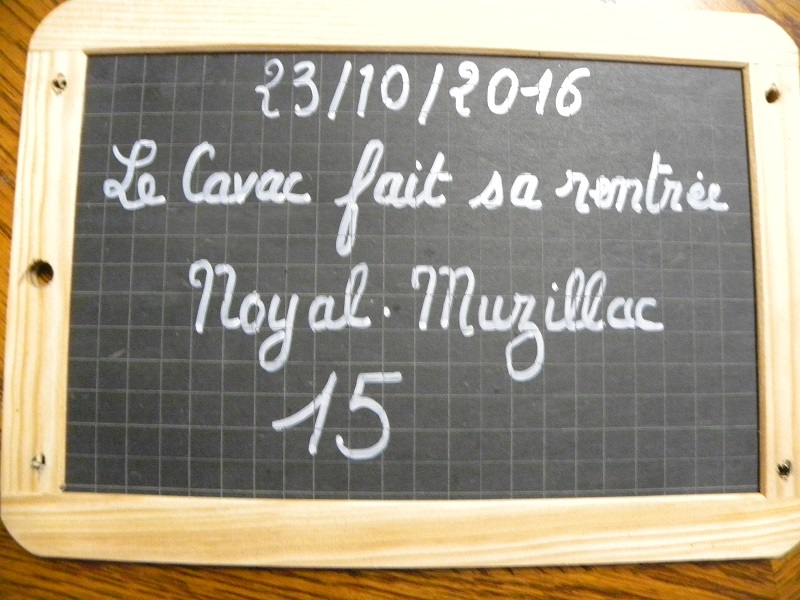 23/10/2016
Le Cavac fait sa rentrée
Noyal-Muzillac
15